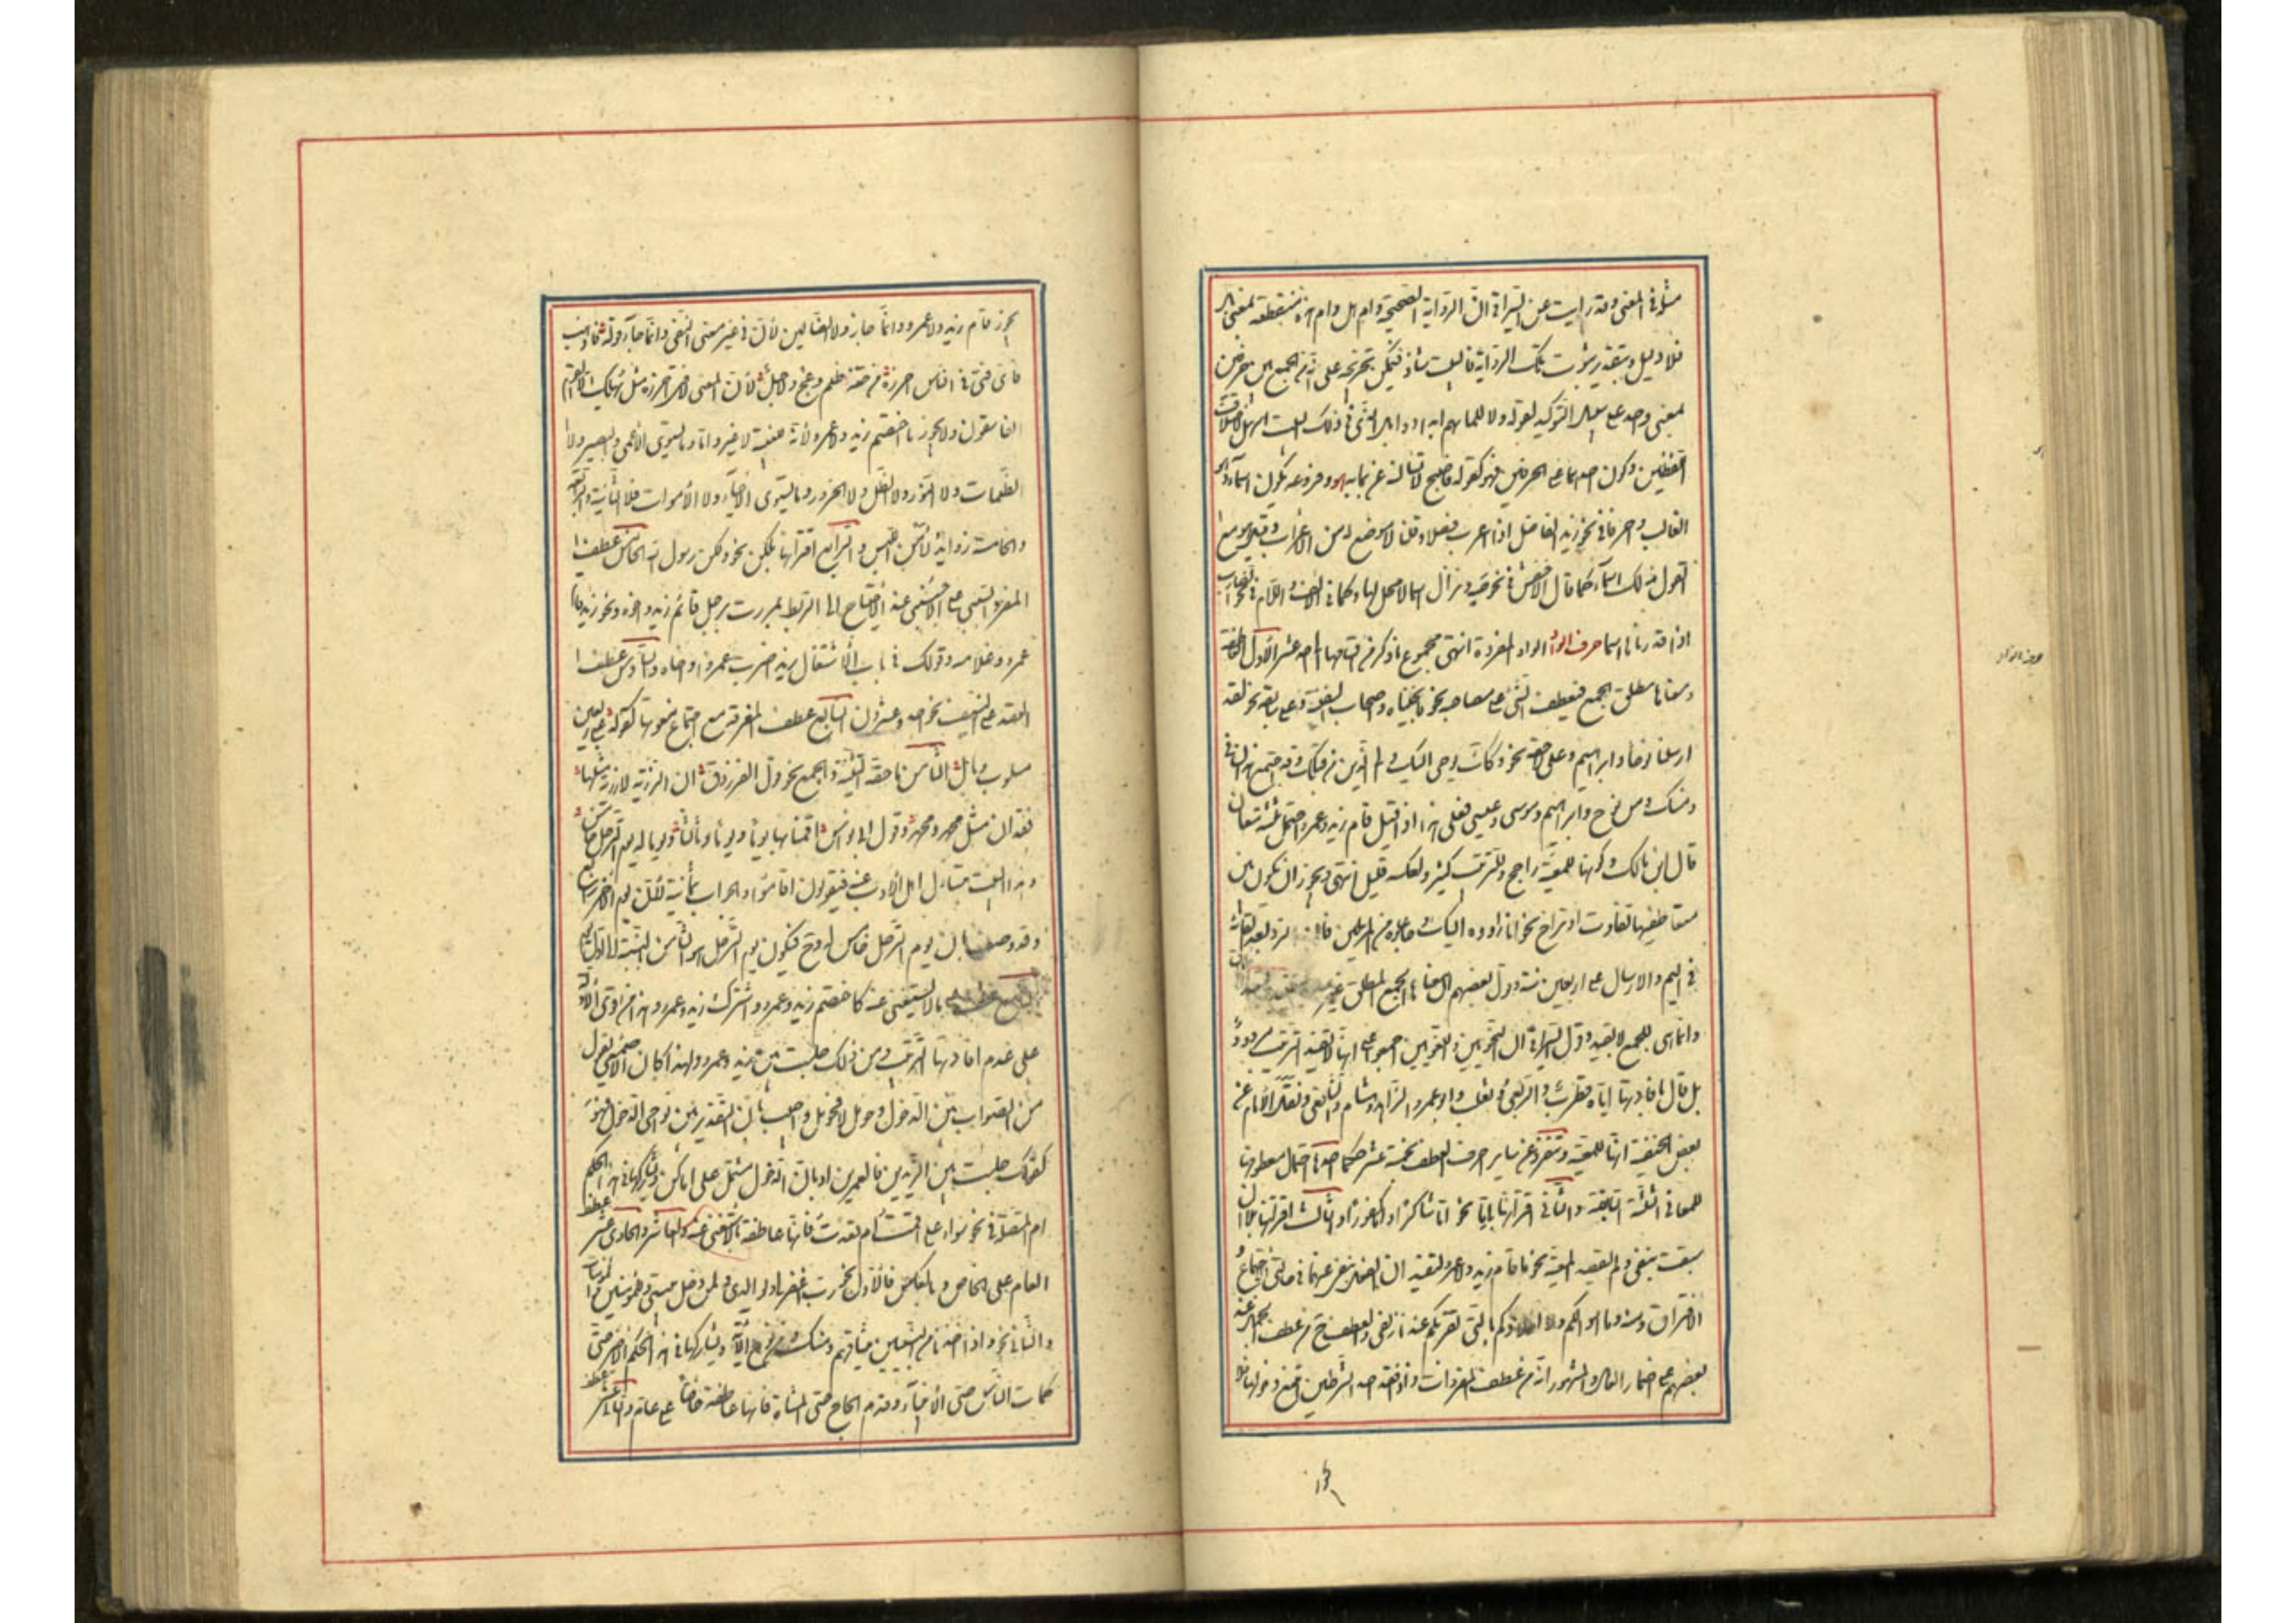 مثلا في المعنى وقد رايت عن السيرافي ان الرواية الصحيحة وام هل وام هذه منقطعة بمعنى بل
فلا دليل وبتقدير ثبوت تلك الرواية فالبيت شاذ فيمكن تخريجه على انه من الجمع بين حرفين
لمعنى واحد على سبيل التوكيد لقوله ولا للما بهم ابدا دواء بل الذي في ذلك البيت اسهل لاختلاف
اللفظين وكون احدهما على حرفين فهو كقوله فاصبح لا يسألنه عن بما به هو وفروعه تكون اسماء وهو
الغالب وحرفا في نحو زيد هو الفاضل اذا اعرب فصلا وقلنا لا موضع له من الاعراب وقيل هو مع
القول بذلك اسماء كما قال الاخفش في نحو صه ونزال اسما لا محل لها وكما في الالف واللام في نحو الضارب
اذا قدرناها اسما حرف الواو الواو المفردة انتهى مجموع ما ذكر من اقسامها احد عشر الاول العاطفة
ومعناها مطلق الجمع فتعطف الشئ على مصاحبه نحو فانجيناه واصحاب السفينة وعلى سابقه نحو لقد
ارسلنا نوحا وابراهيم وعلى لاحقه نحو وكذلك يوحى اليك والى الذين من قبلك وقد اجتمع هذان في
ومنك ومن نوح وابراهيم وموسى وعيسى فعلى هذا اذا قيل قام زيد وعمرو احتمل ثلثة معان
قال ابن مالك وكونها للمعية راجح وللترتيب كثير ولعكسه قليل انتهى ويجوز ان يكون بين
متعاطفيها تفاوت او تراخ نحو انا رادوه اليك وجاعلوه من المرسلين فان الرد بعيد القائه
في اليم والارسال على اربعين سنة وقول بعضهم ان معناها الجمع المطلق غير
وانما هي للجمع لا بقيد وقول السيرافي ان النحويين واللغويين اجمعوا على انها لا تفيد الترتيب مردود
بل قال بافادتها اياه قطرب والربعي والفراء وثعلب وابو عمرو الزاهد وهشام والشافعي ونقل الامام عن
بعض الحنفية انها للمعية وتنفرد عن ساير احرف العطف بخمسة عشر حكما احدها احتمال معطوفها
للمعاني الثلثة السابقة والثاني اقترانها باما نحو اما شاكرا واما كفورا والثالث اقترانها بلا ان
سبقت بنفي ولم تقصد المعية نحو ما قام زيد ولا عمرو لتفيد ان الفعل منفي عنهما في حالتي الاجتماع و
الافتراق ومنه وما اموالكم ولا اولادكم بالتي تقربكم عندنا زلفى والعطف ح من عطف الجمل عند
بعضهم على اضمار العامل والمشهور انه من عطف المفردات واذا فقد احد الشرطين امتنع دخولها فلا
يجوز
حرف الواو
يجوز قام زيد ولا عمرو وانما جاز ولا الضالين لان في غير معنى النفي وانما جاز قوله فاذهب
فاي فتى في الناس احرزه من حتفه ظلم دعج ولا جبل لان المعنى لا فتى احرزه مثل فهل يهلك الا القوم
الفاسقون ولا يجوز ما اختصم زيد ولا عمرو لانه للمعية لا غير واما وما يستوي الاعمى والبصير ولا
الظلمات ولا النور ولا الظل ولا الحرور وما يستوي الاحياء ولا الاموات فلا الثانية والرابعة
والخامسة زوايد لامن اللبس والرابع اقترانها بلكن نحو ولكن رسول الله الخامس عطف
المفرد السببي على الاجنبي عند الاحتياج الى الربط كمررت برجل قائم زيد واخوه ونحو زيد قائم
عمرو وغلامه وقولك في باب الاشتغال زيد ضربت عمروا واخاه والسادس عطف
العقد على النيف نحو احد وعشرون السابع عطف المفرقة مع اجتماع منعوتها كقوله على ربعين
مسلوب وبال الثامن ما حقه التثنية والجمع نحو قول الفرزدق ان الرزية لا رزية مثلها
فقدان مثل محمد ومحمد وقول ابي نواس اقمنا بها يوما ويوما وثالثا ويوما له يوم الترحل خامس
وهذا البيت يتسائل اهل الادب عنه فيقولون كم اقاموا والجواب ثمانية لان يوم الاخير رابع
وقد وصف بان يوم الترحل خامس له وح فيكون يوم الترحل هو الثامن بالنسبة الى اول يوم
التاسع عطف ما لا يستغنى عنه كاختصم زيد وعمرو واشترك زيد وعمرو وهذا من اقوى الادلة
على عدم افادتها الترتيب ومن ذلك جلست بين زيد وعمرو ولهذا كان الاصمعي يقول
من الصواب بين الدخول وحومل لا فحومل واجيب بان التقدير بين نواحي الدخول فهو
كقولك جلست بين الزيدين فالعمرين او بان الدخول مشتمل على اماكن وتشاركها في هذا الحكم
ام المتصلة في نحو سواء علي اقمت ام قعدت فانها عاطفة ما لا يستغنى عنه والعاشر والحادي عشر عطف
العام على الخاص وبالعكس فالاول نحو رب اغفر لي ولوالدي ولمن دخل بيتي مؤمنا وللمؤمنين والمؤمنات
والثاني نحو واذ اخذنا من النبيين ميثاقهم ومنك ومن نوح الاية ويشاركها في هذا الحكم الاخير حتى
كمات الناس حتى الانبياء وقدم الحاج حتى المشاة فانها عاطفة خاصا على عام والثاني عشر عطف